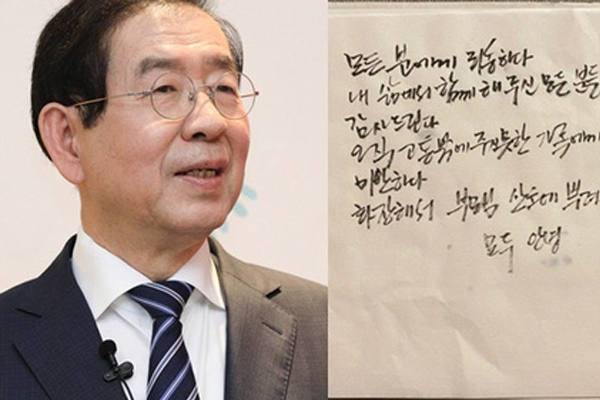 모든 분에게 죄송하다
내 삶에서 함께 해주신 모든 분들
감사드린다
오직 고통밖에 주지 못한 가족에게
미안하다
화장해서 부모님 산소에 뿌려
모두 안녕